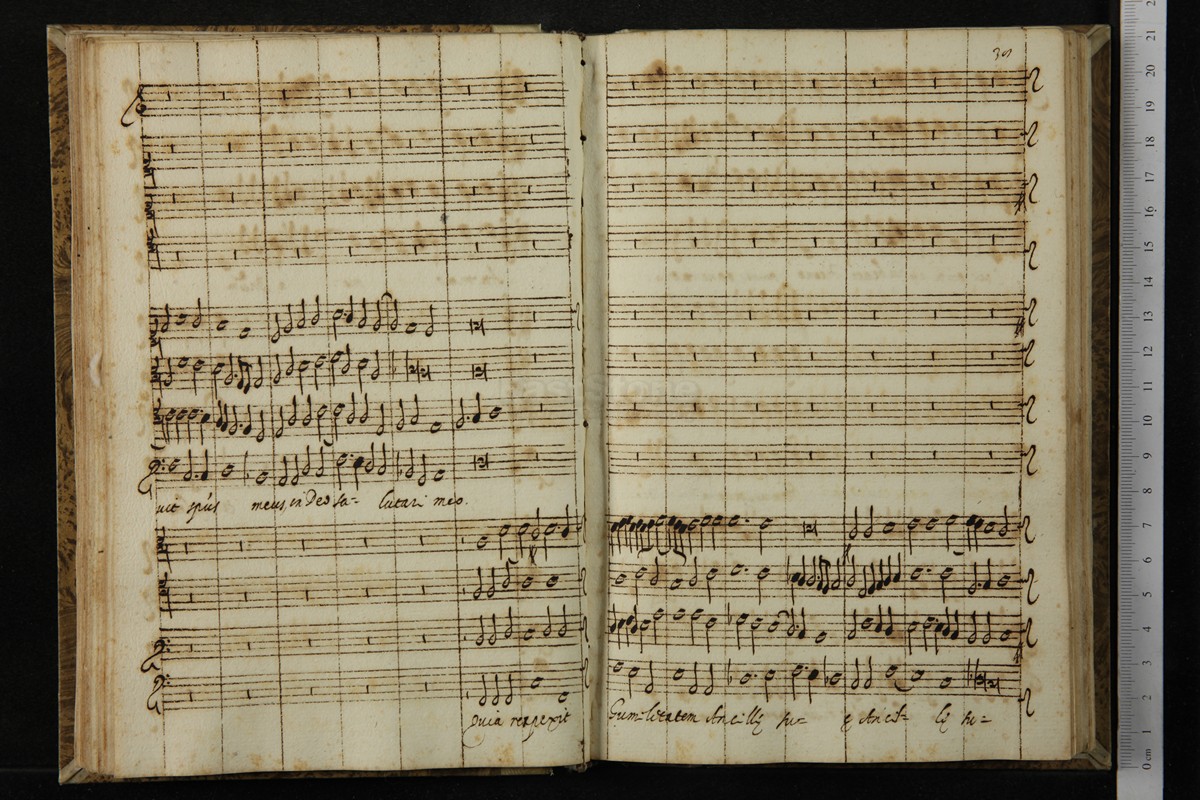 39
uit spūs meus, in Deo sa= lutari meo.
Quia respexit
humilitatem Ancillę su= ę Ancil= lę su=
21
20
19
18
17
16
15
14
13
12
11
10
9
8
7
6
5
4
3
2
1
0 cm